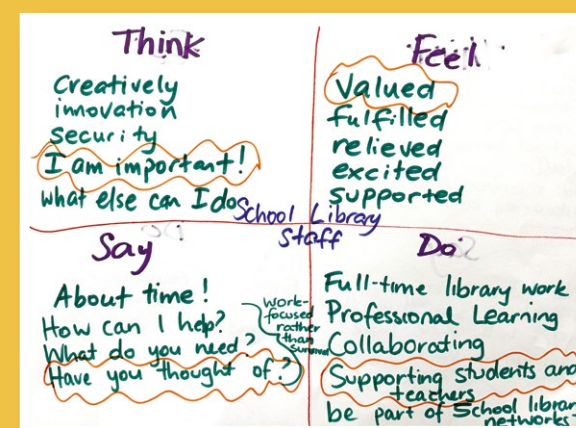 Think
Creatively
innovation
security
I am important!
what else can I do
Feel
Valued
fulfilled
relieved
excited
supported
School Library
Staff
Say
About time!
How can I help?
What do you need?
Have you thought of?
work-
focused
rather
than
Do
Full-time library work
Professional Learning
Collaborating
Supporting students and
teachers
be part of School librar
networks